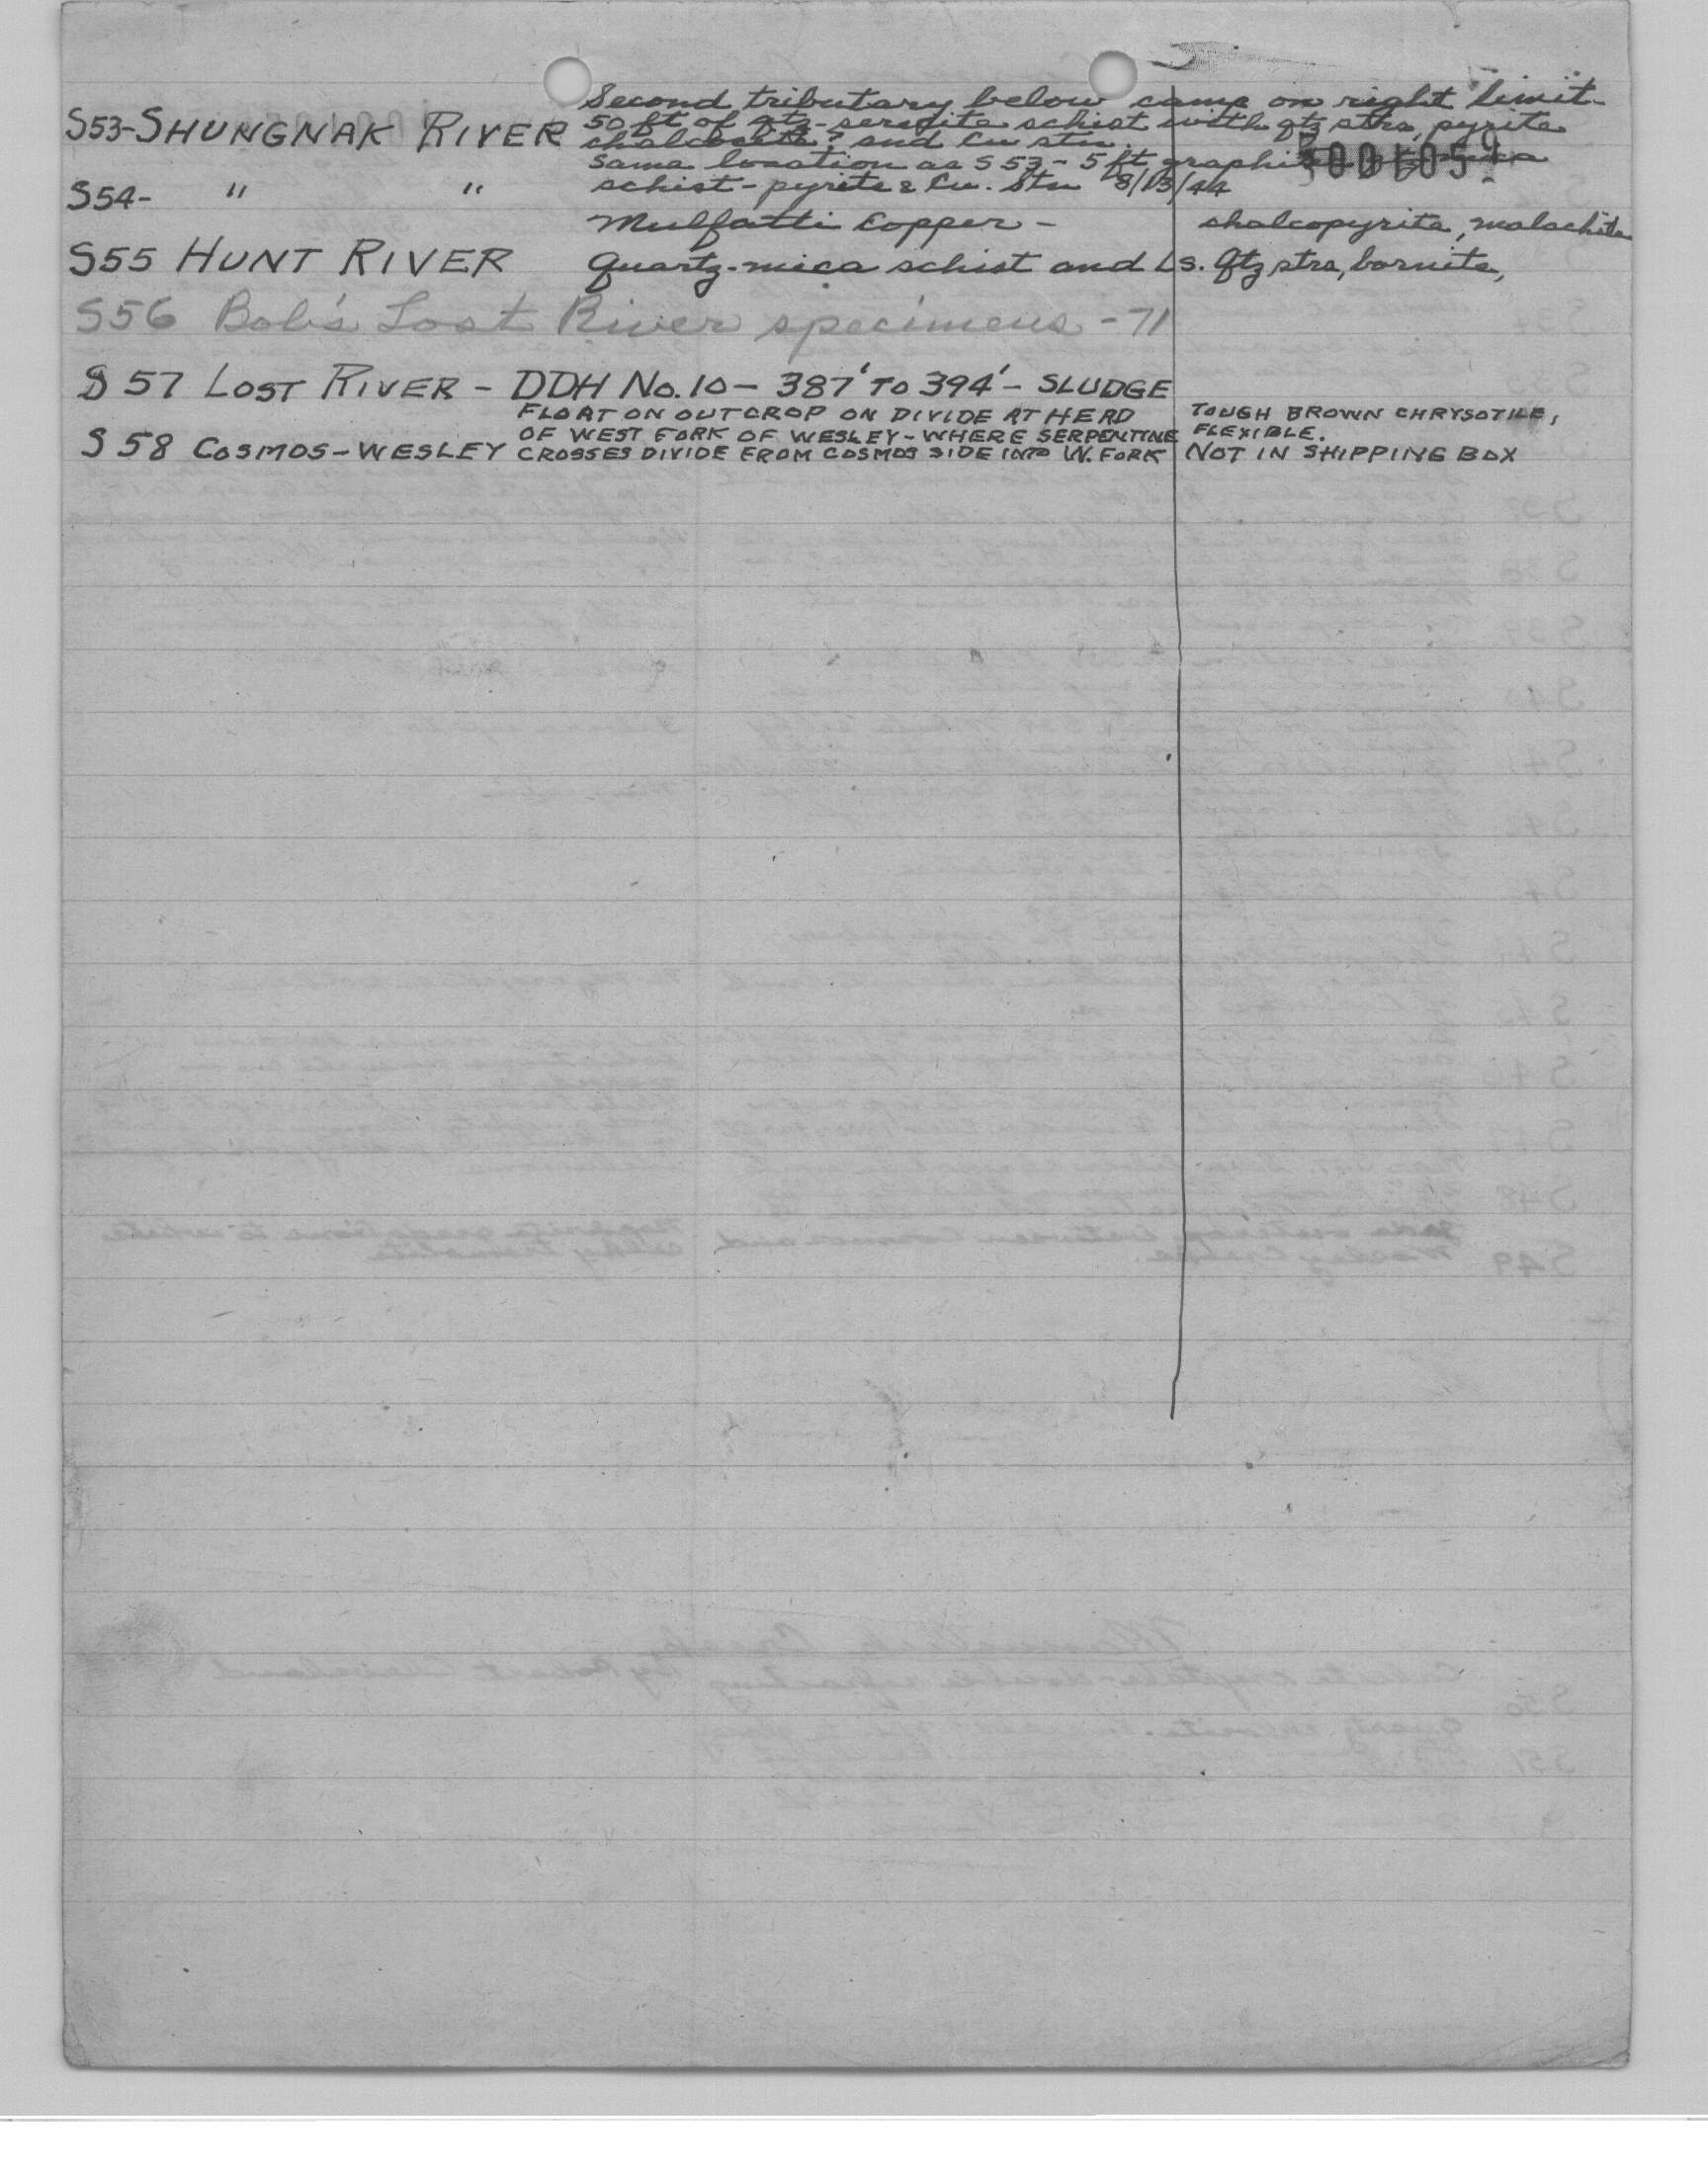 Second tributary below camp on right limit-
S53-SHUNGNAK RIVER 50 ft of qtz-seresite schist with qtz strs, pyrite
chalcocite? and Cu stn.
Same location as S53 - 5 ft graphite
S54- " " schist - pyrite & Cu. Stn 8/13/44
Mulfatti Copper - chalcopyrite, malachite
S55 HUNT RIVER Quartz-mica schist and Ls. Qtz strs, bornite,
S56 Bob's Lost River specimens - 71
S57 LOST RIVER - DDH No. 10 - 387' TO 394' - SLUDGE
FLOAT ON OUTCROP ON DIVIDE AT HEAD TOUGH BROWN CHRYSOTILE,
OF WEST FORK OF WESLEY - WHERE SERPENTINE FLEXIBLE.
S58 COSMOS-WESLEY CROSSES DIVIDE FROM COSMOS SIDE INTO W. FORK NOT IN SHIPPING BOX